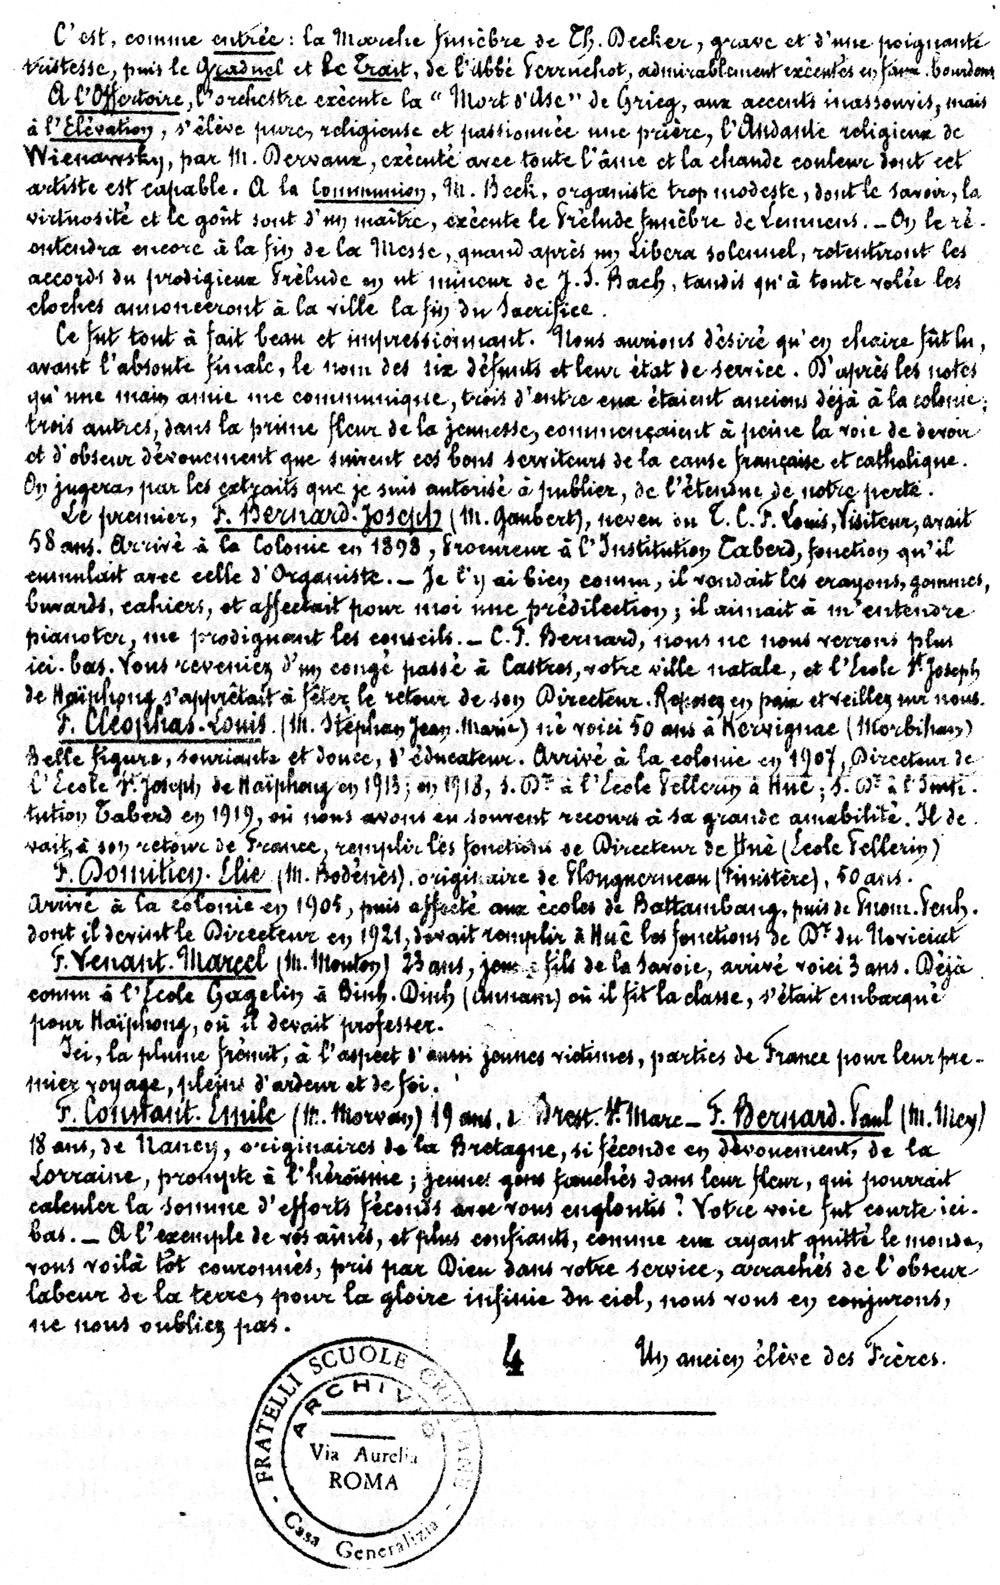 C'est, comme entrée : la Marche funèbre de Th. Decker, grave et d'une poignante
tristesse, puis le Graduel et le Trait, de l'Abbé Perruchot, admirablement exécutés en faux-bourdons
A l'Offertoire, l'orchestre exécute la "Mort d'Ase" de Grieg, aux accents inassouvis, mais
à l'Elévation, s'élève pure, religieuse et passionnée une prière, l'Andante religieux de
Wienawsky, par M. Dervaux, exécuté avec toute l'âme et la chaude couleur dont cet
artiste est capable. A la Communion, M. Beck, organiste trop modeste, dont le savoir, la
virtuosité et le goût sont d'un maître, exécute le Prélude funèbre de Lemmens. _ On le ré-
entendra encore à la fin de la Messe, quand après un Libera solennel, retentiront les
accords du prodigieux Prélude en ut mineur de J. S. Bach, tandis qu'à toute volée les
cloches annonceront à la ville la fin du Sacrifice.
Ce fut tout à fait beau et impressionnant. Nous aurions désiré qu'en chaire fût lu,
avant l'absoute finale, le nom des six défunts et leur état de service. D'après les notes
qu'une main amie me communique, trois d'entre eux étaient anciens déjà à la colonie ;
trois autres, dans la prime fleur de la jeunesse, commençaient à peine la voie de devoir
et d'obscur dévouement que suivent ces bons serviteurs de la cause française et catholique.
On jugera, par les extraits que je suis autorisé à publier, de l'étendue de notre perte.
Le premier, F. Bernard-Joseph (M. Gaubert), neveu du T. C. F. Louis, Visiteur, avait
58 ans. Arrivé à la Colonie en 1898, Procureur à l'Institution Taberd, fonction qu'il
cumulait avec celle d'Organiste. _ Je l'y ai bien connu, il vendait les crayons, gommes,
buvards, cahiers, et affectait pour moi une prédilection ; il aimait à m'entendre
pianoter, me prodiguant les conseils. _ C. F. Bernard, nous ne nous verrons plus
ici-bas. Vous reveniez d'un congé passé à Castres, votre ville natale, et l'Ecole St Joseph
de Haïphong s'apprêtait à fêter le retour de son Directeur. Reposez en paix et veillez sur nous.
F. Cléophas-Louis. (M. Stéphan Jean-Marie) né voici 50 ans à Kervignac (Morbihan)
Belle figure, souriante et douce, d'éducateur. Arrivé à la colonie en 1907, Directeur de
l'Ecole St Joseph de Haïphong en 1913 ; en 1918, s. Dr à l'Ecole Pellerin à Hué ; s. Dr à l'Insti-
tution Taberd en 1919, où nous avons eu souvent recours à sa grande amabilité. Il de-
vait, à son retour de France, remplir les fonctions de Directeur de Hué (Ecole Pellerin)
F. Domitien-Elie (M. Bodénès), originaire de Plouguerneau (Finistère), 50 ans.
Arrivé à la colonie en 1905, puis affecté aux écoles de Battambang, puis de Pnom-Penh.
dont il devint le Directeur en 1921, devait remplir à Hué les fonctions de Dr du Noviciat
F. Venant-Marcel (M. Mouton) 23 ans, jeune fils de la Savoie, arrivé voici 3 ans. Déjà
connu à l'Ecole Gagelin à Binh-Dinh (Annam) où il fit la classe, s'était embarqué
pour Haïphong, où il devait professer.
Ici, la plume frémit, à l'aspect d'aussi jeunes victimes, parties de France pour leur pre-
mier voyage, pleins d'ardeur et de foi.
F. Constant-Emile (M. Morvan) 19 ans, d Brest-St Marc _ F. Bernard-Paul (M. Mey)
18 ans, de Nancy, originaires de la Bretagne, si féconde en dévouement, de la
Lorraine, prompte à l'héroïsme ; jeunes gens fauchés dans leur fleur, qui pourrait
calculer la somme d'efforts féconds avec vous engloutis ? Votre voie fut courte ici-
bas. _ A l'exemple de vos aînés, et plus confiants, comme eux ayant quitté le monde,
vous voilà tôt couronnés, pris par Dieu dans votre service, arrachés de l'obscur
labeur de la terre, pour la gloire infinie du ciel, nous vous en conjurons,
ne nous oubliez pas.
4
Un ancien élève des Frères.
FRATELLI SCUOLE CRISTIANE
ARCHIVIO
Via Aurelia
ROMA
- Casa Generalizia -